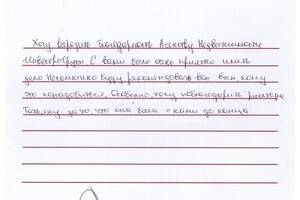 Хочу выразить Благодарность Агентству Недвижимости
ИнвестроГрупп С вами было очень приятно иметь
дело Несомненно Буду рекомендовать вас всем, кому
это понадобиться, Особенно, хочу поблагодарить риелтора
Татьяну за то, что она была с нами до конца